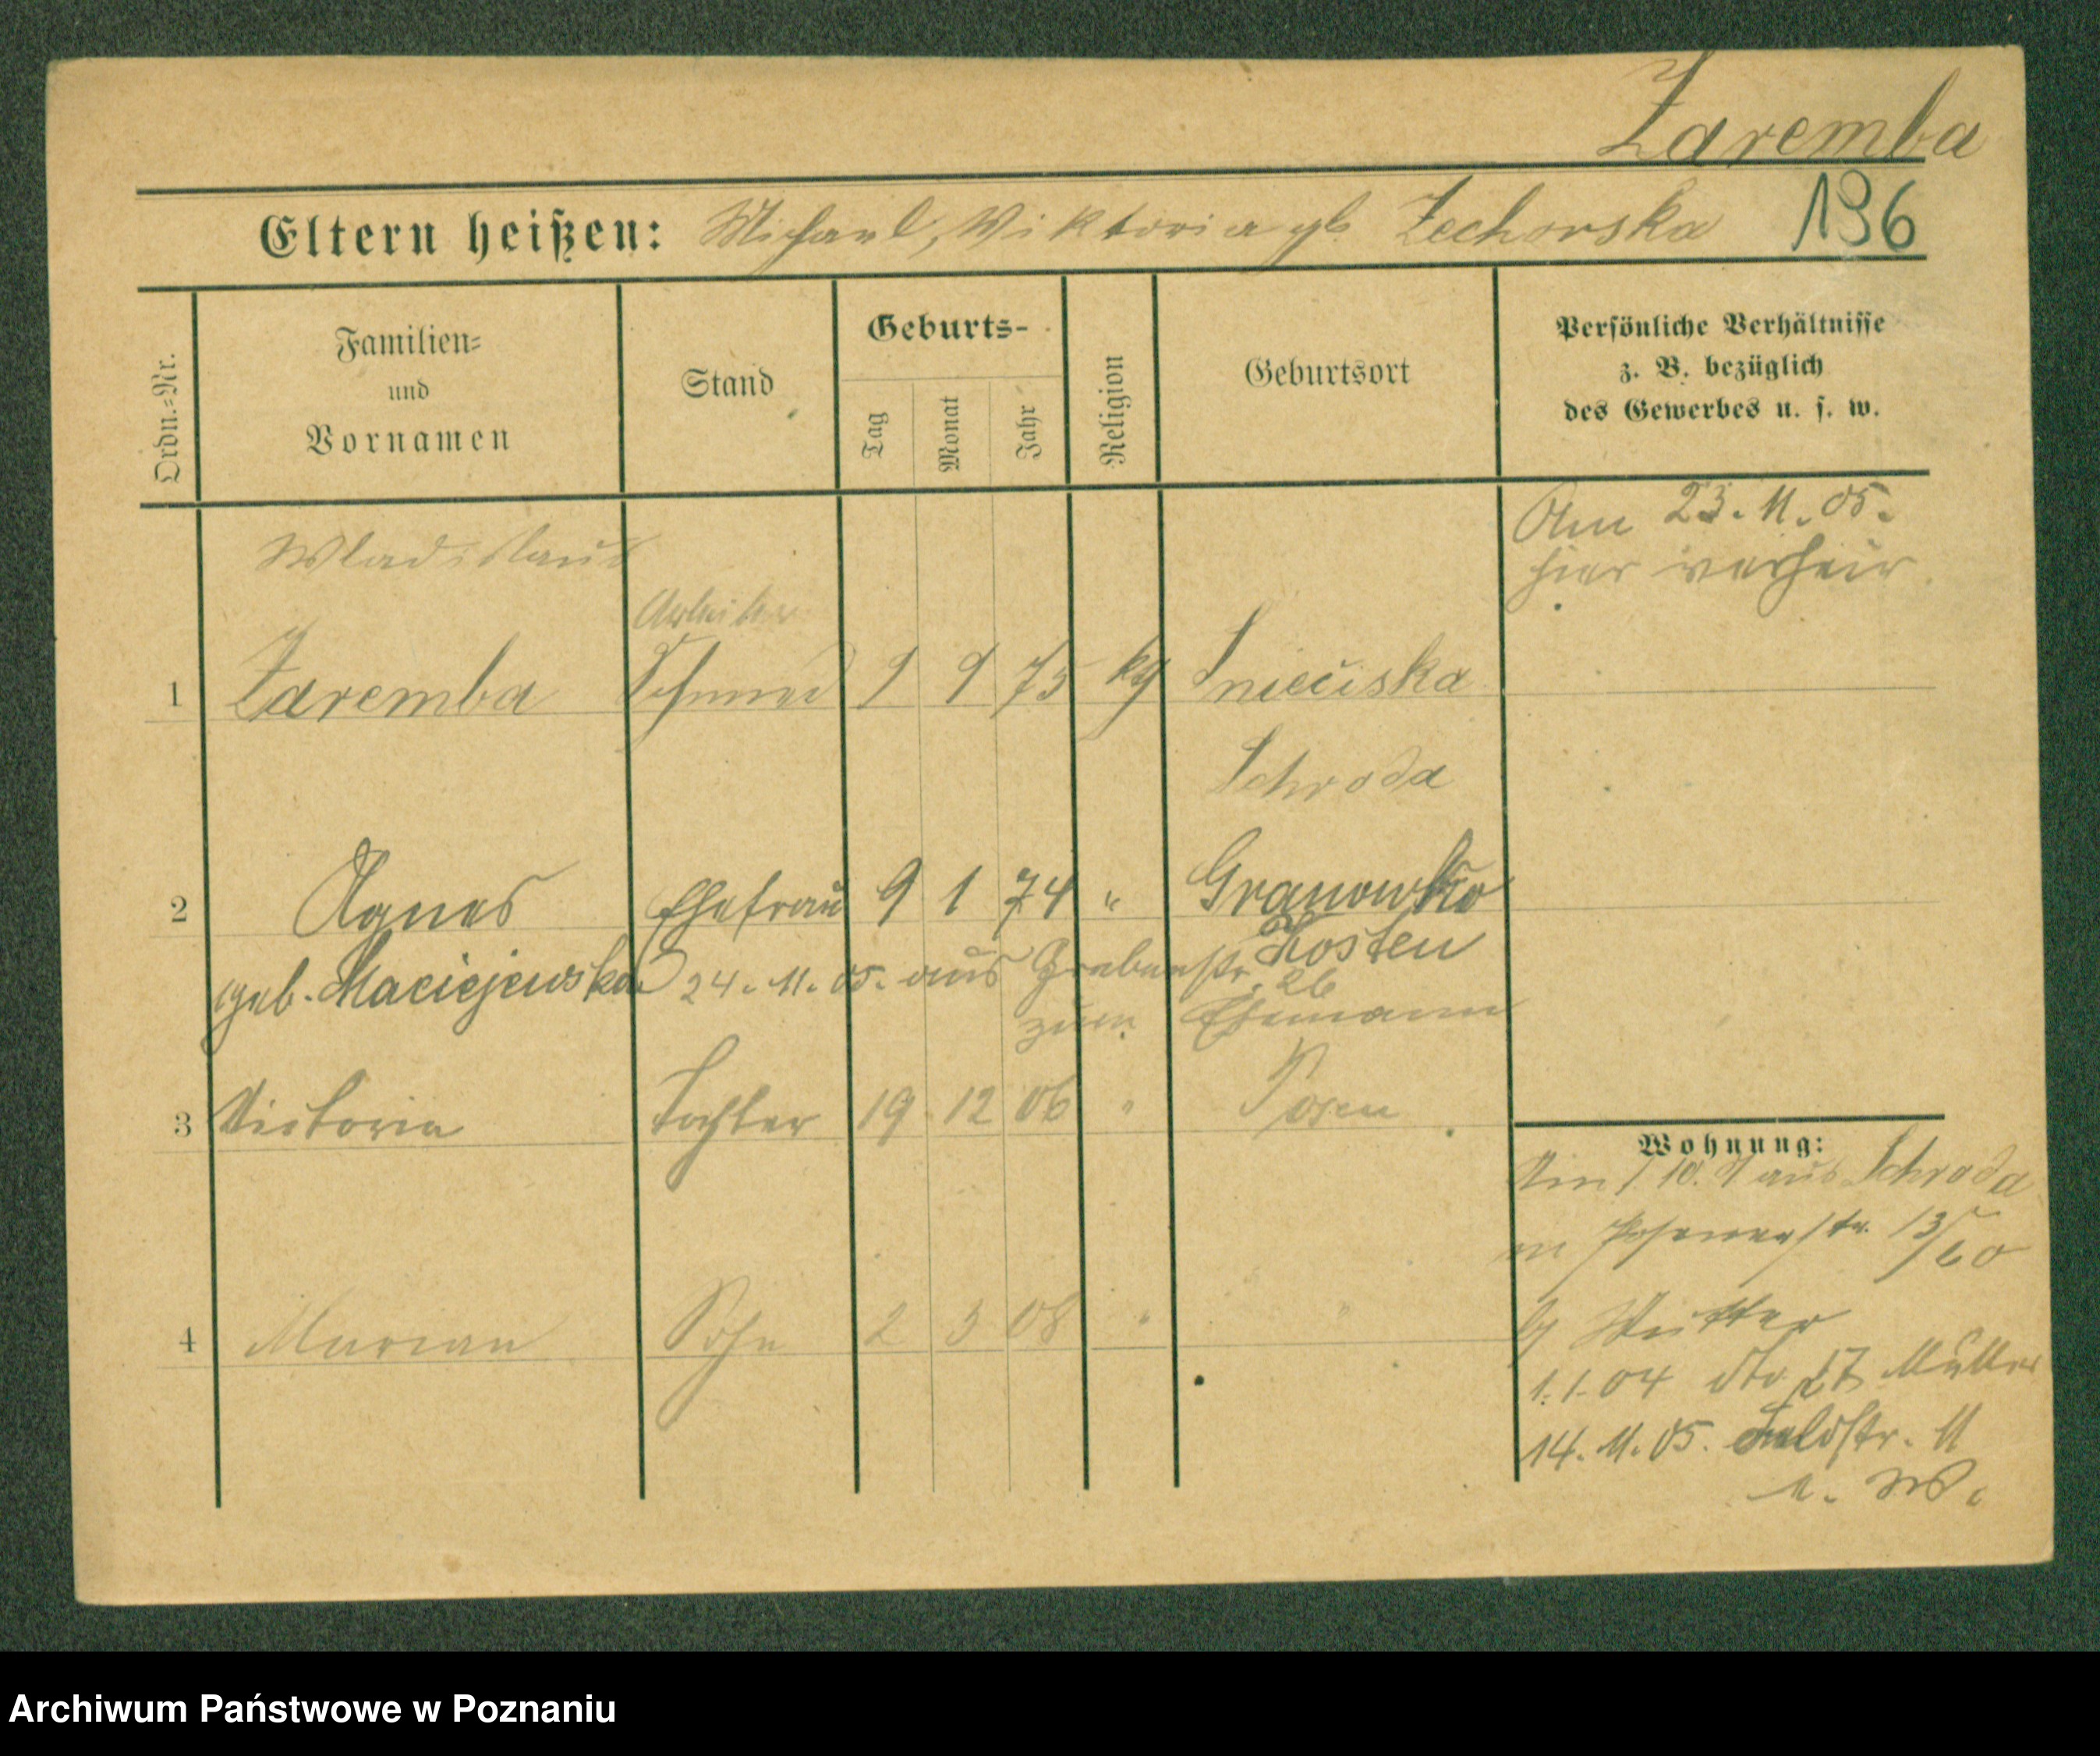 Zaremba
Eltern heißen: Michael, Viktoria gb. Zechorska 196
Ordn.=Nr.
Familien=
und
Vornamen
Stand
Geburts-
Tag
Monat
Jahr
Religion
Geburtsort
Persönliche Verhältnisse
z. B. bezüglich
des Gewerbes u. s. w.
Am 23. 11. 05.
hier verheir
Wladislaus
Arbeiter
1 Zaremba Schmied 9 9 75 kg Snieciska
Schroda
2 Agnes Ehefrau 9 1 74 " Granowko
Kosten
geb. Maciejewska 24. 11. 05. aus Grabenstr. 26
zum Ehemann
3 Victoria Tochter 19 12 06 " Posen
4 Marian Sohn 2 3 08 " "
Wohnung:
aus Schroda
13/60
Mutter
1. 1. 04 dto 27 Müller
14. 11. 05. Feldstr. 11